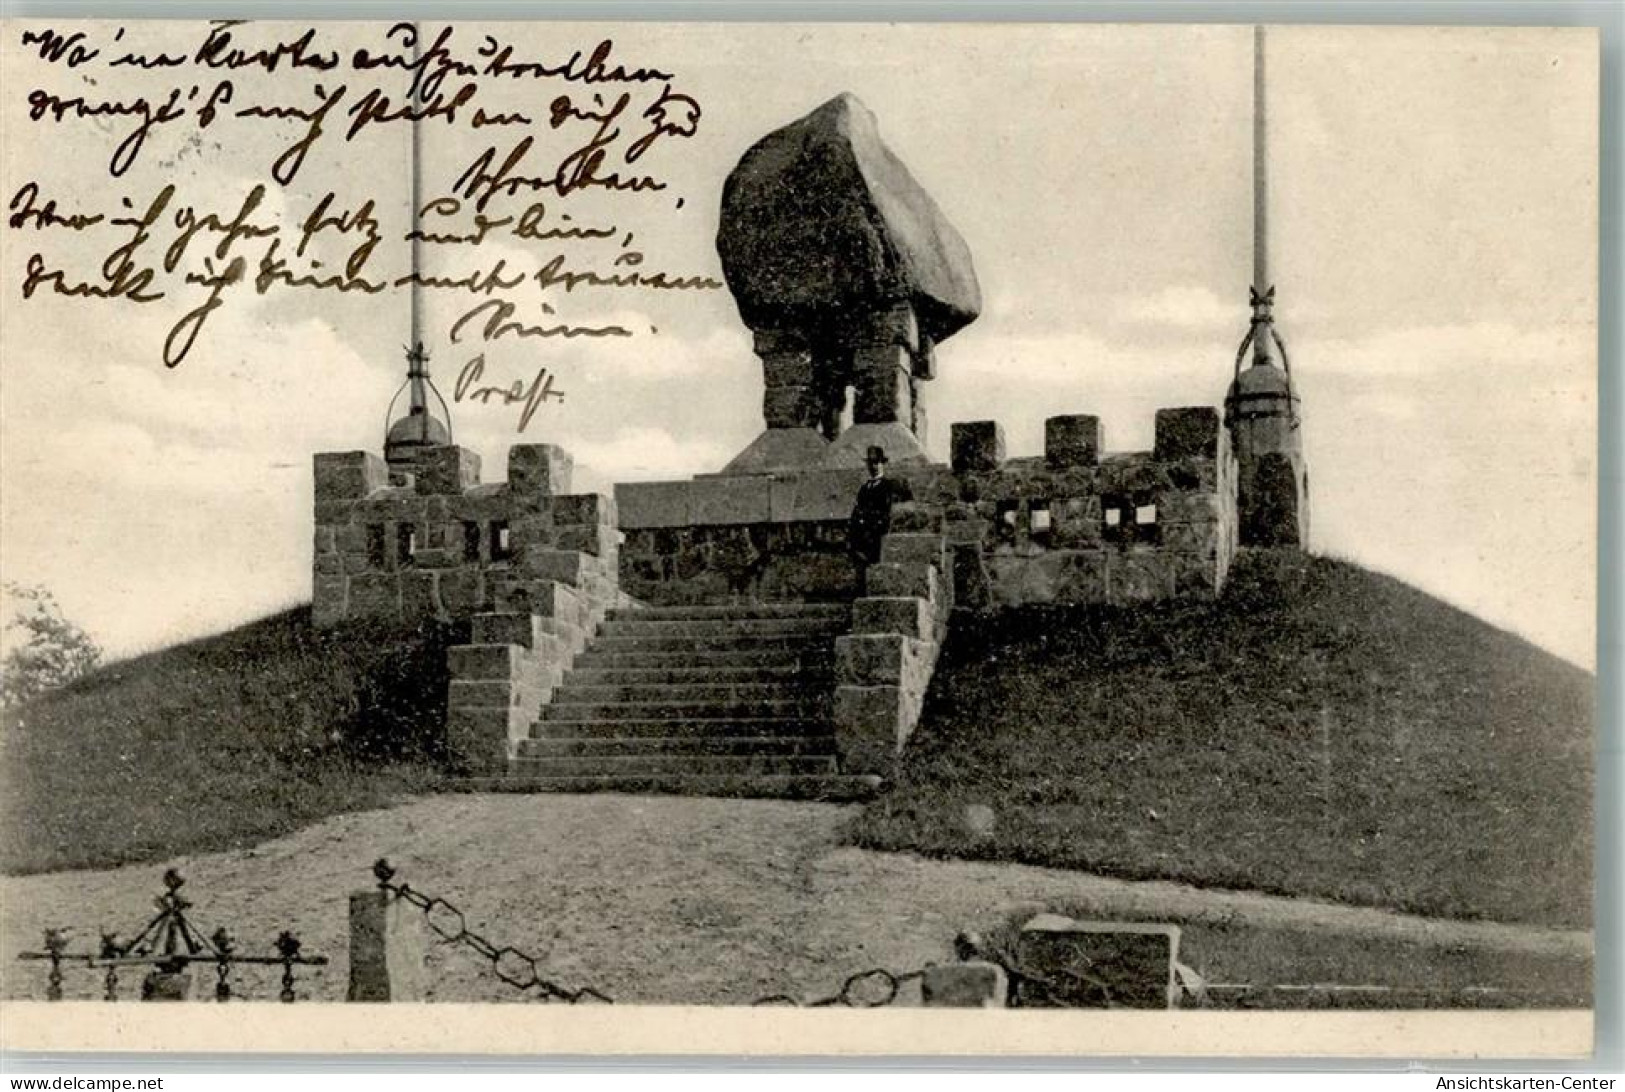 "Wo 'ne Karte aufzutreiben,
drängt's mich stets an Dich zu
schreiben,
Wo ich gehe, sitz und bin,
denk ich Dein mit treuem
Sinne.
Prost.
www.delcampe.net
Ansichtskarten-Center